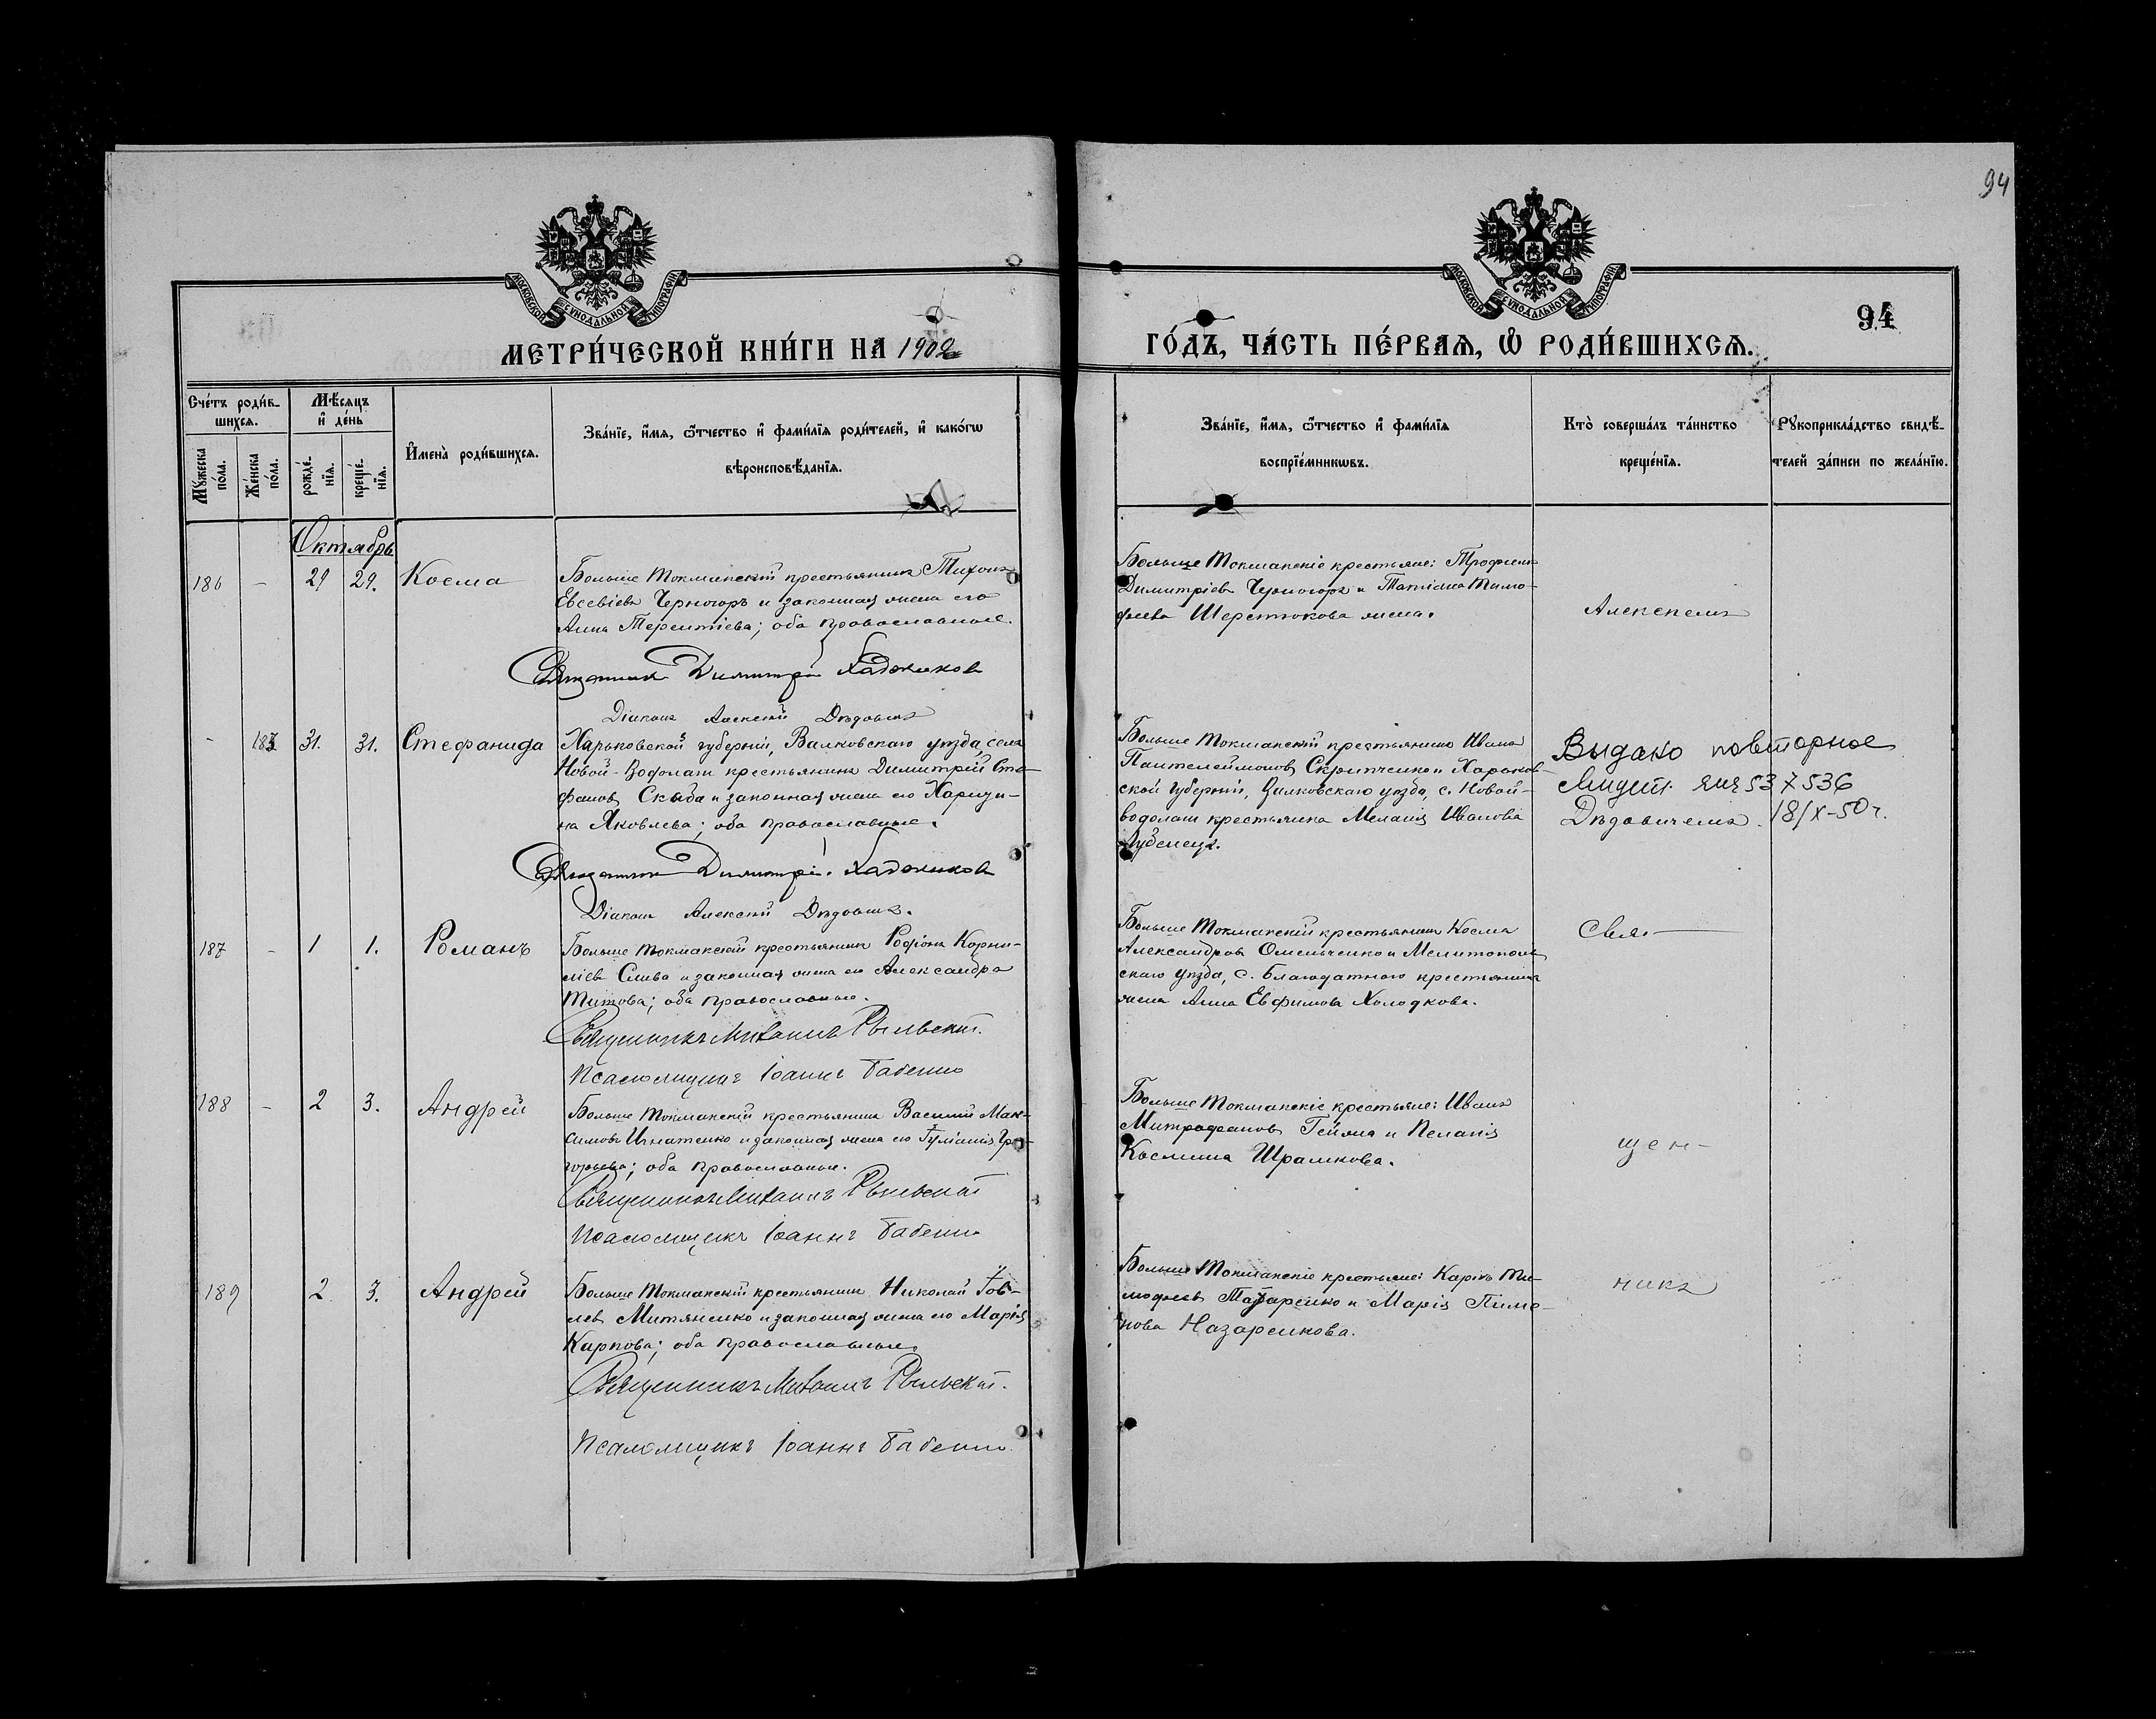 94
МОСКОВСКОЙ СѴНОДАЛЬНОЙ ТИПОГРАФІИ
МОСКОВСКОЙ СѴНОДАЛЬНОЙ ТИПОГРАФІИ
94
МЕТРИ́ЧЕСКОЙ КНИ́ГИ НА 1902
ГО́ДЪ, ЧА́СТЬ ПЕ́РВАѦ, Ѽ РОДИ́ВШИХСѦ.
Сче́тъ роди́в-
шихсѧ.
Мꙋжеска по́ла.
Же́нска по́ла.
Мѣ́сѧцъ
и҆ де́нь
рожде́-
нїѧ.
креще́-
нїѧ.
И҆мена̀ роди́вшихсѧ.
Зва́нїе, и҆́мѧ, ѻ҆́тчество и҆ фами́лїѧ роди́телей, и҆ како́гѡ
вѣроисповѣ́данїѧ.
Зва́нїе, и҆́мѧ, ѻ҆́тчество и҆ фами́лїѧ
воспрїе́мникѡвъ.
Кто̀ соверша́лъ та́инство
креще́нїѧ.
Рꙋкоприкла́дство свидѣ́-
телей за́писи по жела́нїю.
Октябрь
186 - 29 29. Косма
Больше Токмакскій крестьянинъ Тихонъ
Евсевіевъ Черногоръ и законная жена его
Анна Терентіева; оба православные.
Священникъ Димитрій Хаджиновъ
Діаконъ Алексій Дѣдовичъ
Больше Токмакскіе крестьяне: Трофимъ
Димитріевъ Черногоръ и Татіана Тимо-
феева Шерстюкова жена.
Алексѣемъ
- 183 31. 31. Стефанида
Харьковской губерніи, Валковскаго уѣзда, села
Новой-Водолаги крестьянинъ Димитрій Сте-
фановъ Скиба и законная жена его Харити-
на Яковлева; оба православные.
Священникъ Димитрій Хаджиновъ
Діаконъ Алексій Дѣдовичъ.
Больше Токмакскій крестьянинъ Иванъ
Пантелеймоновъ Скрипченко и Харьков-
ской губерніи, Валковскаго уѣзда, с. Новой-
водолаги крестьянка Меланія Иванова
Лубенецъ.
Выдано повторное
537536
Дѣдовичемъ. 18/X-50 г.
187 - 1 1. Романъ
Больше Токмакскій крестьянинъ Родіонъ Корни-
ліевъ Слива и законная жена его Александра
Титова; оба православные.
Священникъ Михаилъ Рыльскій.
Псаломщикъ Іоаннъ Бабенко
Больше Токмакскій крестьянинъ Косма
Александровъ Омельченко и Мелитополь-
скаго уѣзда, с. Благодатного крестьянина
жена Анна Евфимова Холодкова.
Свя-
188 - 2 3. Андрей
Больше Токмакскій крестьянинъ Василій Мак-
симовъ Игнатенко и законная жена его Іуліанія Гри-
горьева; оба православные.
Священникъ Михаилъ Рыльскій
Псаломщикъ Іоаннъ Бабенко
Больше Токмакскіе крестьяне: Иванъ
Митрофановъ Гейма и Пелагія
Космина Шрамкова.
щен-
189 2 3. Андрей
Больше Токмакскій крестьянинъ Николай Іов-
левъ Митяненко и законная жена его Марія
Карпова; оба православные.
Священникъ Михаилъ Рыльскій.
Псаломщикъ Іоаннъ Бабенко
Больше Токмакскіе крестьяне: Карпъ Ти-
мофеевъ Татаренко и Марія Пиме-
нова Назаренкова.
никъ